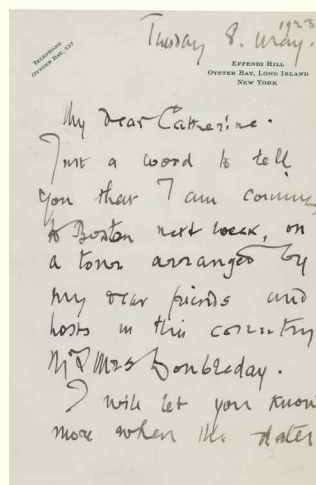 TELEPHONE
OYSTER BAY, 557
Tuesday 8. May. 1923
EFFENDI HILL
OYSTER BAY, LONG ISLAND
NEW YORK
My dear Catherine.
Just a word to tell
you that I am coming
to Boston next week, on
a tour arranged by
my dear friends and
hosts in this country
Mr & Mrs Doubleday.
I will let you know
more when the dates